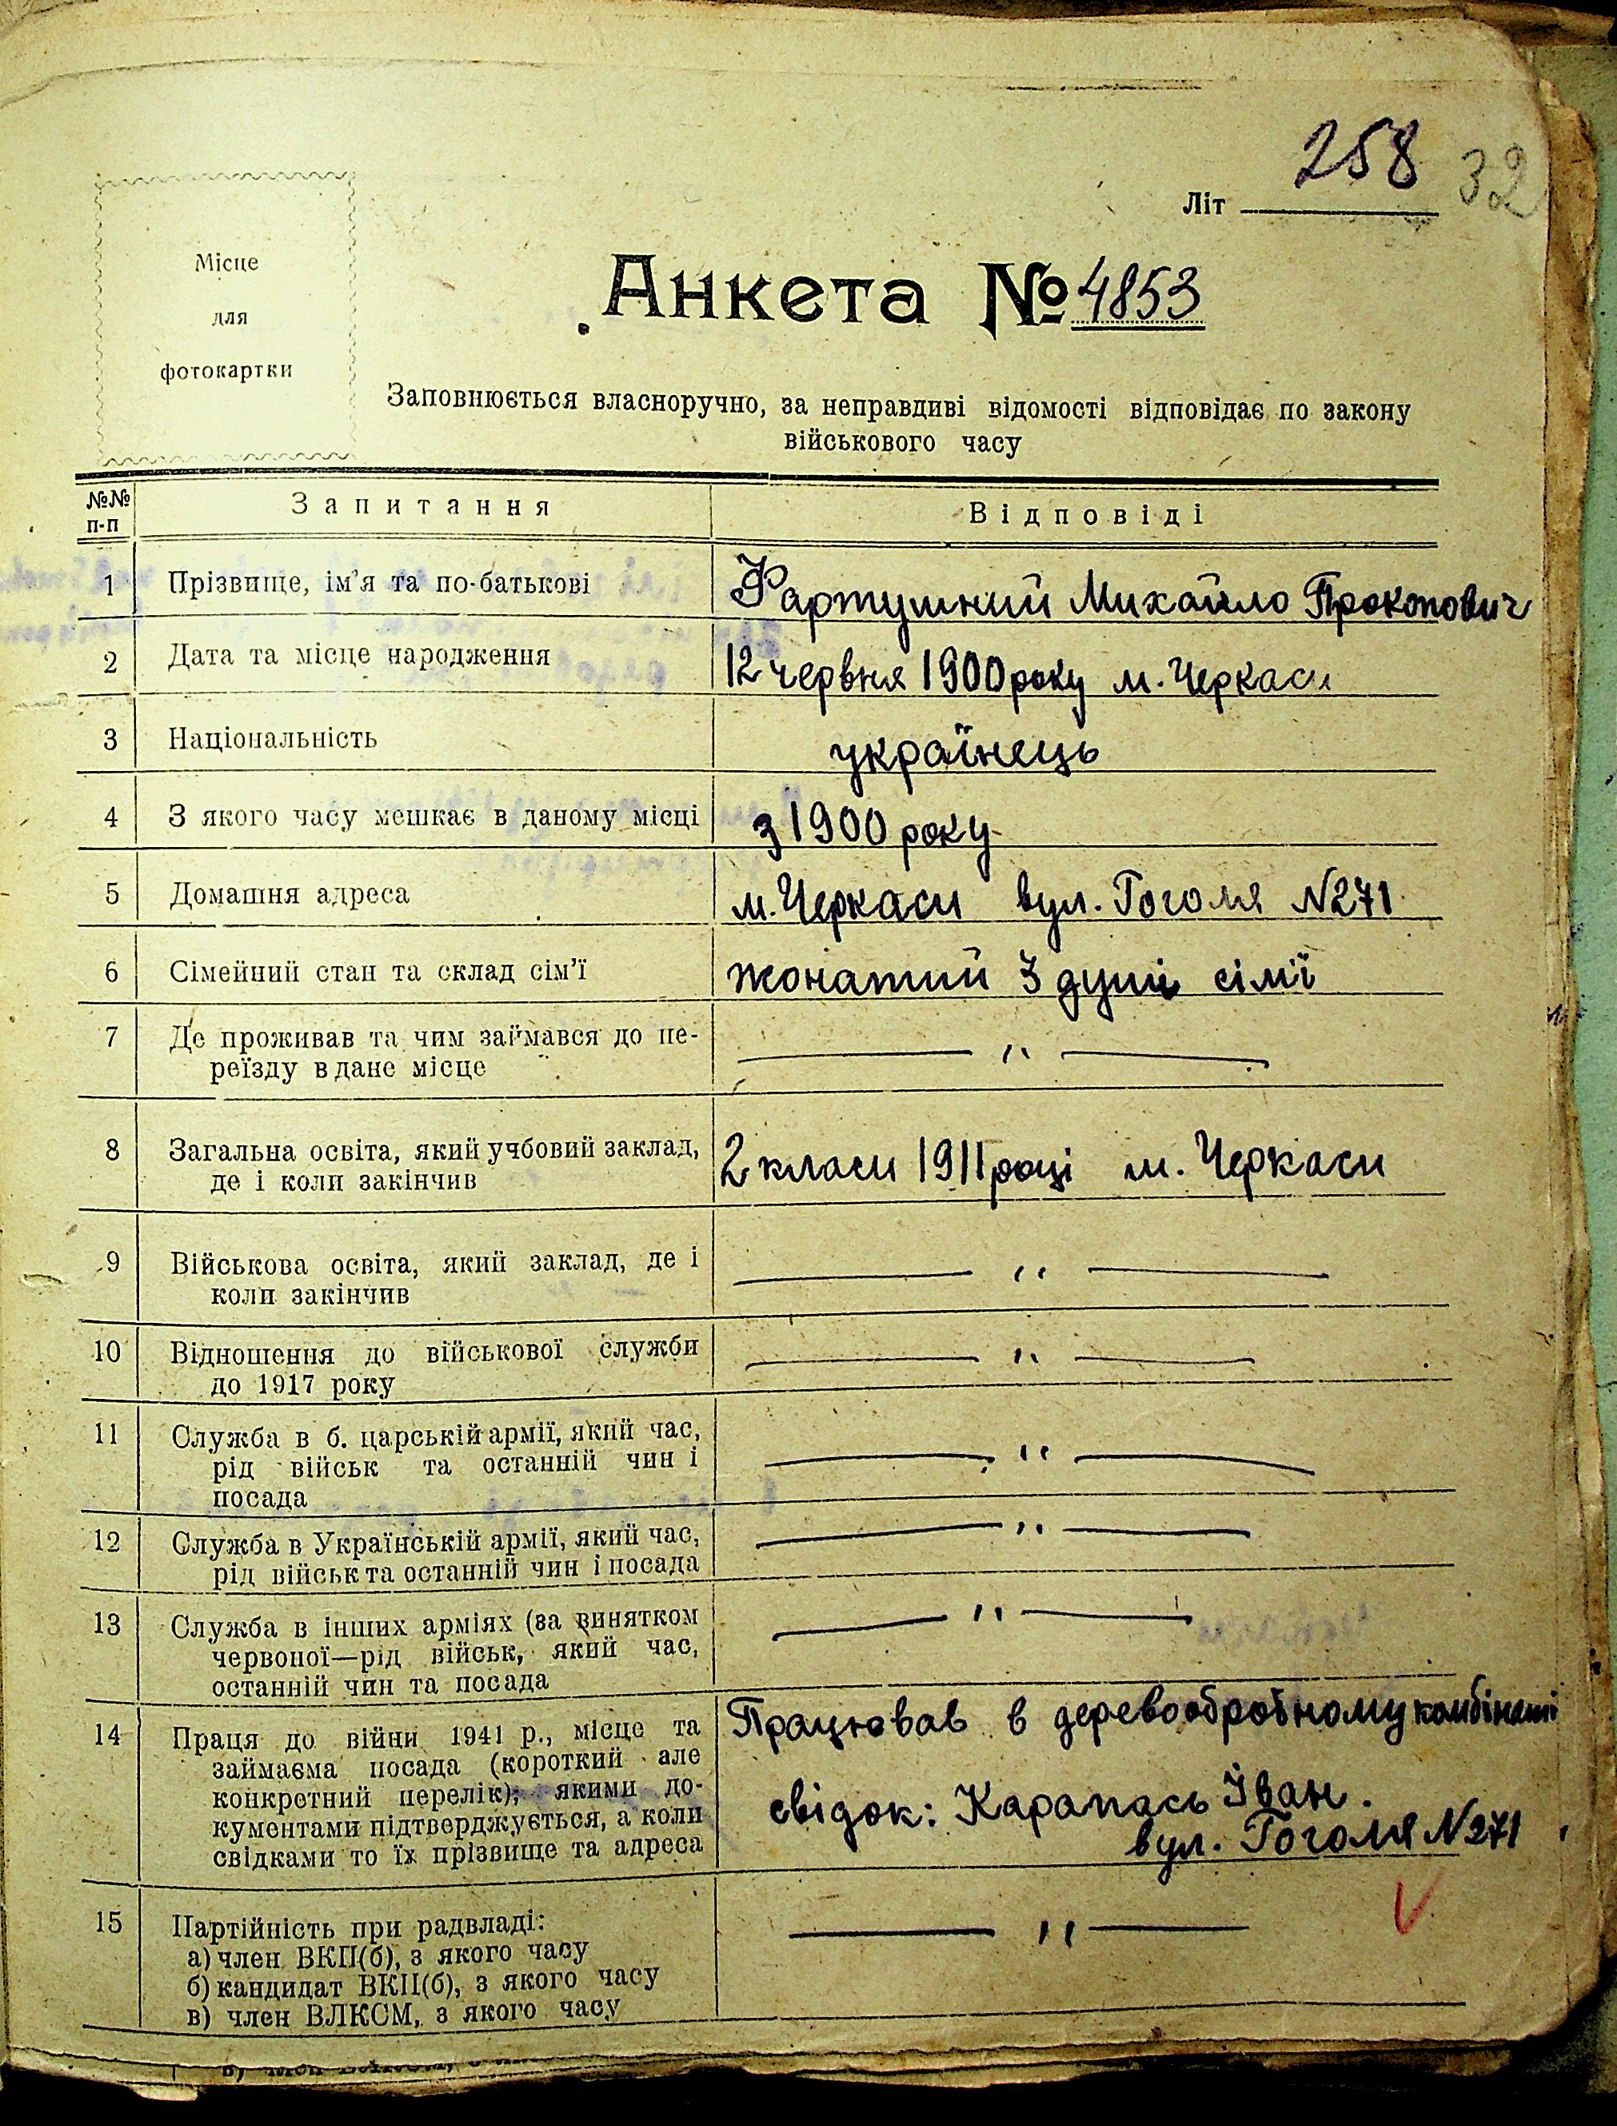 258 32
Літ
Місце
для
фотокартки
Анкета № 4853
Заповнюється власноручно, за неправдиві відомості відповідає по закону
військового часу
№№
п-п
Запитання
Відповіді
1 Прізвище, ім'я та по-батькові Фартушний Михайло Прокопович
2 Дата та місце народження 12 червня 1900 року м. Черкаси
3 Національність українець
4 З якого часу мешкає в даному місці з 1900 року
5 Домашня адреса м. Черкаси вул. Гоголя N271
6 Сімейний стан та склад сім'ї жонатий 3 душі сім'ї
7 Де проживав та чим займався до пе-
реїзду в дане місце — " —
8 Загальна освіта, який учбовий заклад, 2 класи 1911 році м. Черкаси
де і коли закінчив
9 Військова освіта, який заклад, де і — " —
коли закінчив
10 Відношення до військової служби — " —
до 1917 року
11 Служба в б. царській армії, який час, — " —
рід військ та останній чин і
посада
12 Служба в Українській армії, який час, — " —
рід військ та останній чин і посада
13 Служба в інших арміях (за винятком — " —
червоної—рід військ, який час,
останній чин та посада
14 Праця до війни 1941 р., місце та Працював в деревообробному комбінаті
займаєма посада (короткий але
конкретний перелік); якими до-
кументами підтверджується, а коли свідок: Карапась Іван.
свідками то їх прізвище та адреса вул. Гоголя N271
15 Партійність при радвладі: — " —
а) член ВКП(б), з якого часу
б) кандидат ВКП(б), з якого часу
в) член ВЛКСМ, з якого часу